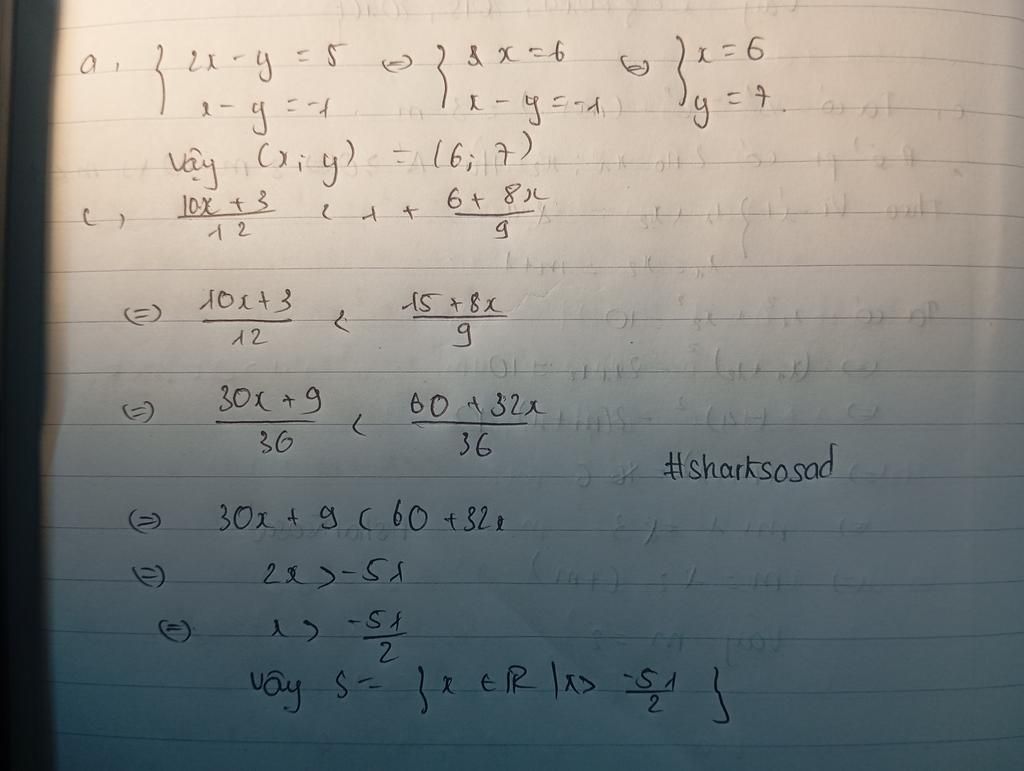 a, { 2x - y = 5 ⇔ { x = 6 ⇔ { x = 6
x - y = -1 x - y = -1 y = 7.
Vậy (x; y) = (6; 7)
c, \frac{10x + 3}{12} < 1 + \frac{6 + 8x}{9}
⇔ \frac{10x + 3}{12} < \frac{15 + 8x}{9}
⇔ \frac{30x + 9}{36} < \frac{60 + 32x}{36}
#sharksosad
⇔ 30x + 9 < 60 + 32x
⇔ 2x > -51
⇔ x > \frac{-51}{2}
Vậy S = { x ∈ ℝ | x > \frac{-51}{2} }